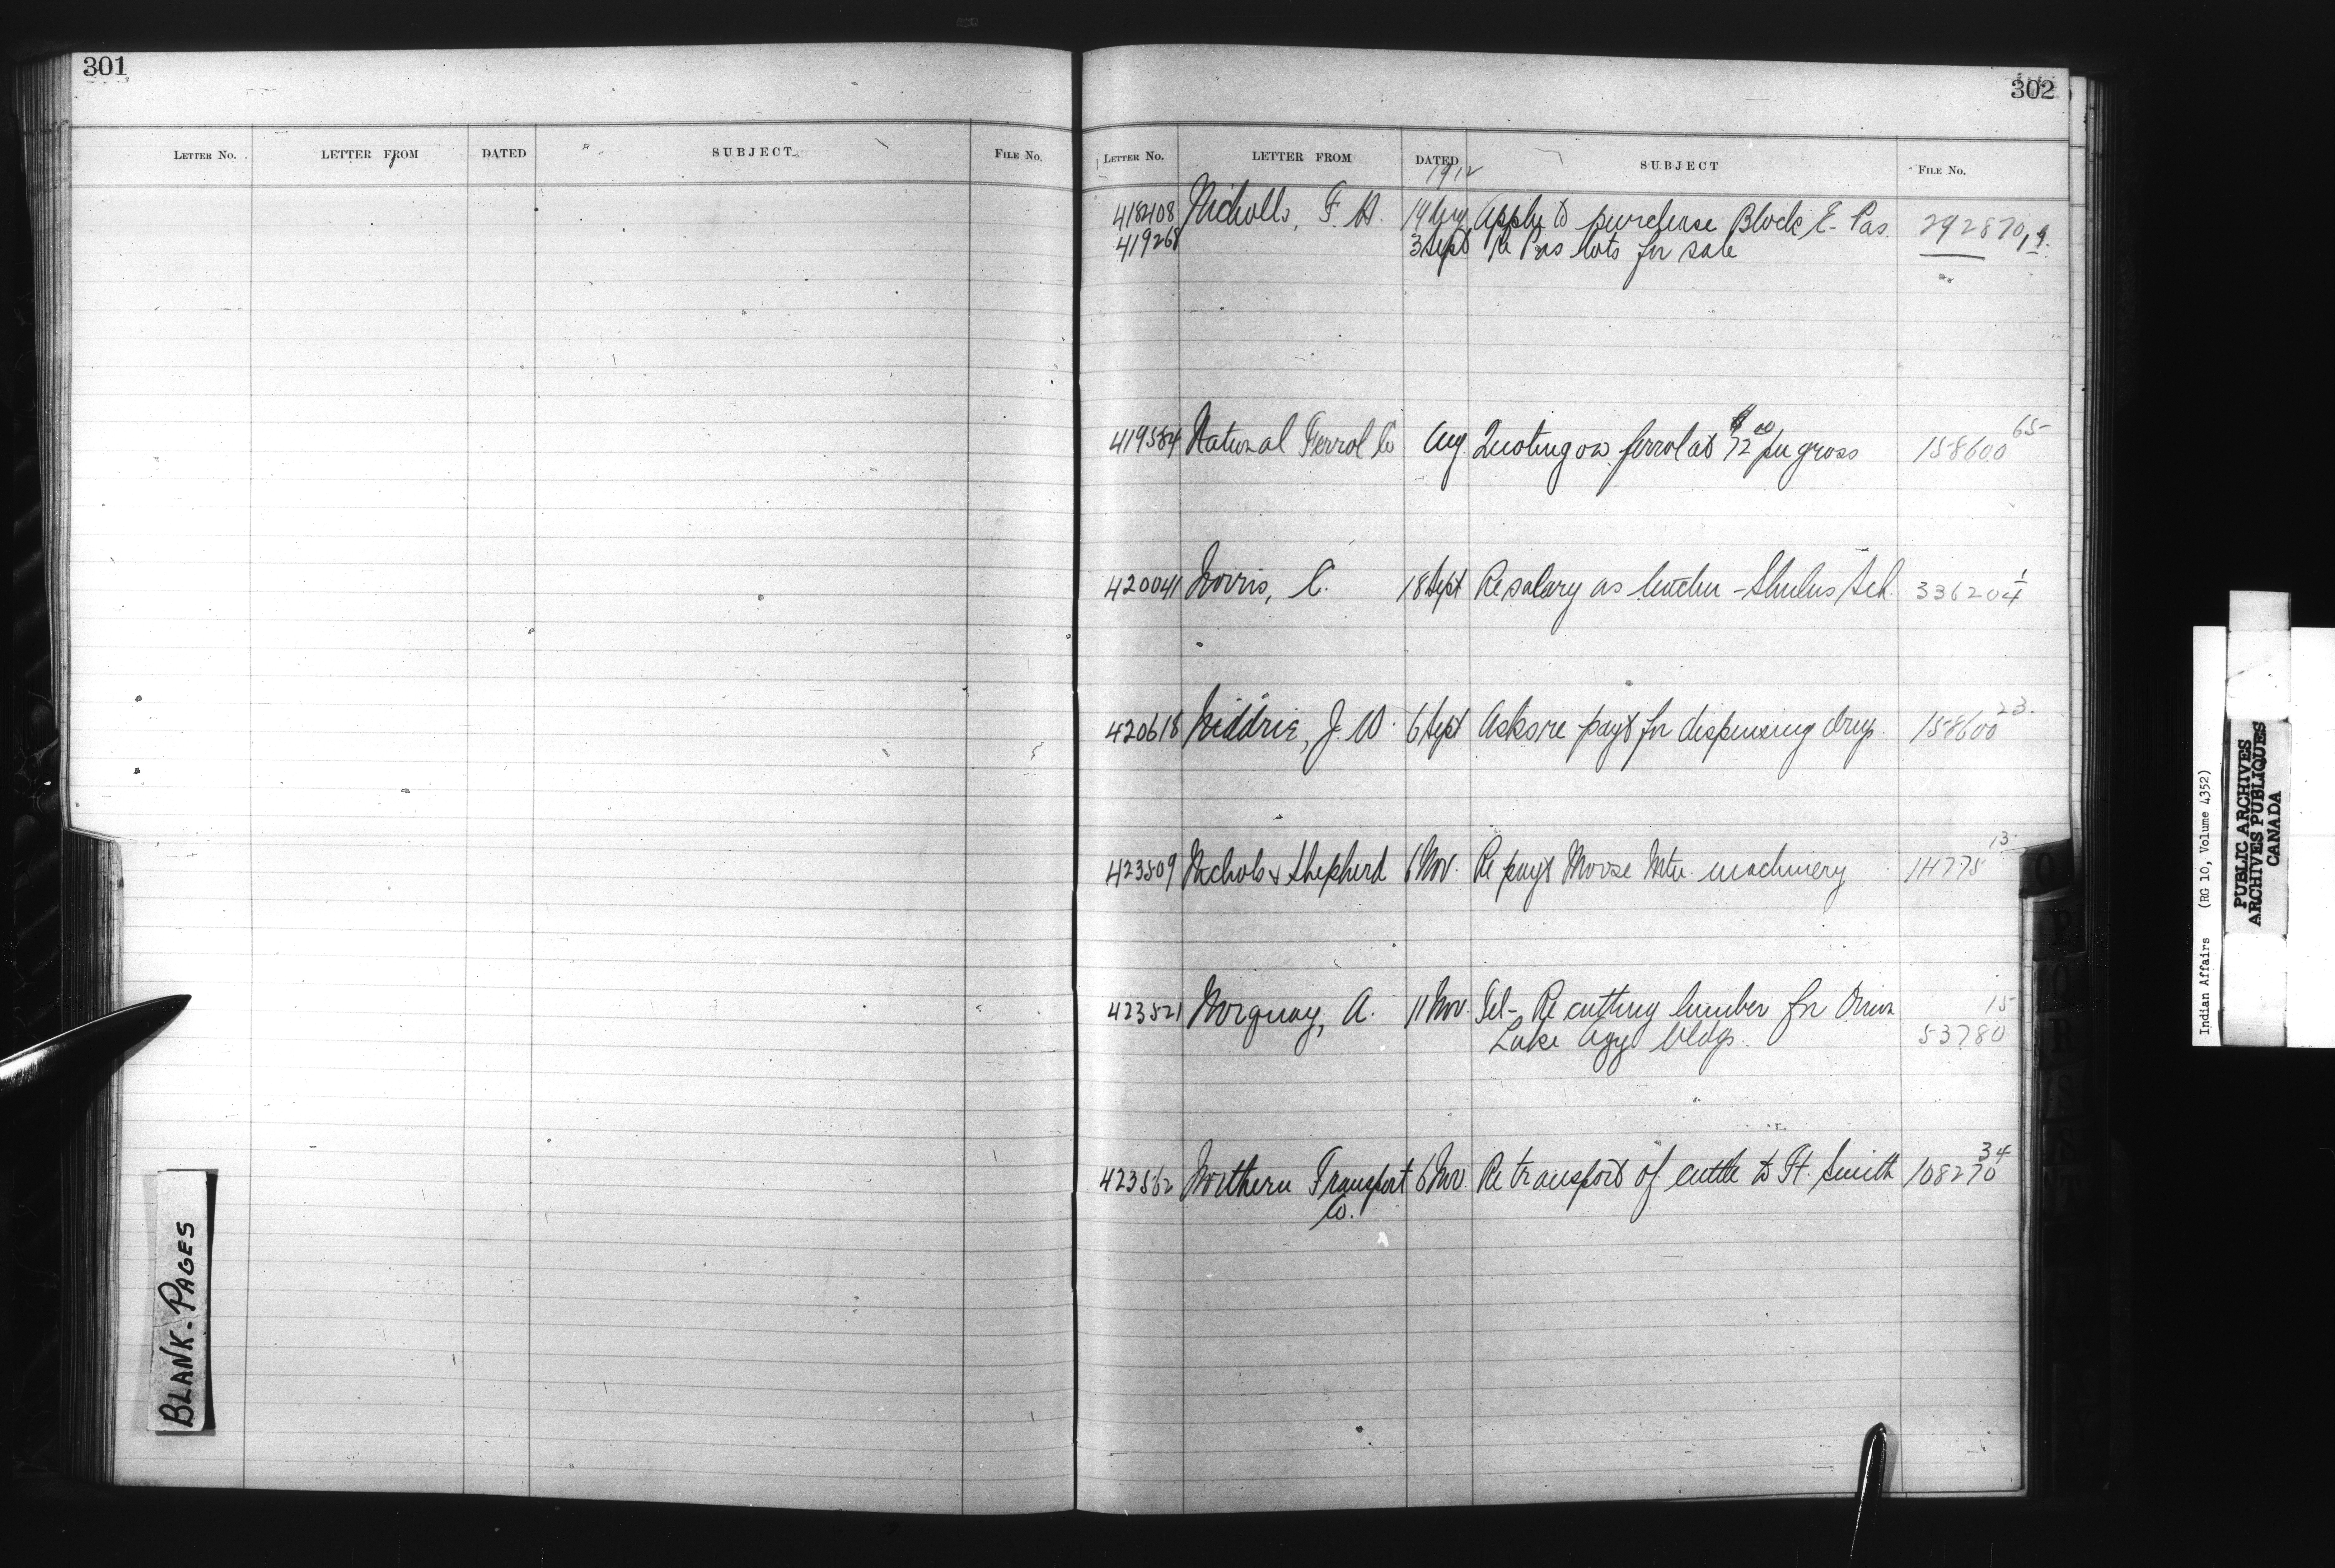 301
LETTER NO. LETTER FROM DATED SUBJECT FILE NO.
BLANK-PAGES
302
LETTER NO. LETTER FROM DATED SUBJECT FILE NO.
1912
418408 Nicholls, F. H. 19 Aug Apple to purchase Block E- Pas. 292870,
419268 3 Sept Re Pas lots for sale
419584 Natural Ferrol Co Aug. Quoting on ferrol at $72.00 per gross 158600 65
420041 Norris, C. 18 Sept Re salary as teacher - Shulus Sch. 336204 1
420618 Niddrie, J. W. 6 Sept Asks re payt for dispensing drugs. 158600 23.
423509 Nichols & Shepherd 6 Nov. Re payt Moose Mtn. machinery 114775 13
423521 Norquay, A. 11 Nov. Tel- Re cutting lumber for Onion 15
Lake Agy bldgs. 53780
423562 Northern Transport 6 Nov. Re transport of cattle to Ft. Smith 108270 34
Co.
Indian Affairs (RG 10, Volume 4352)
PUBLIC ARCHIVES
ARCHIVES PUBLIQUES
CANADA
O
P
Q
R
S